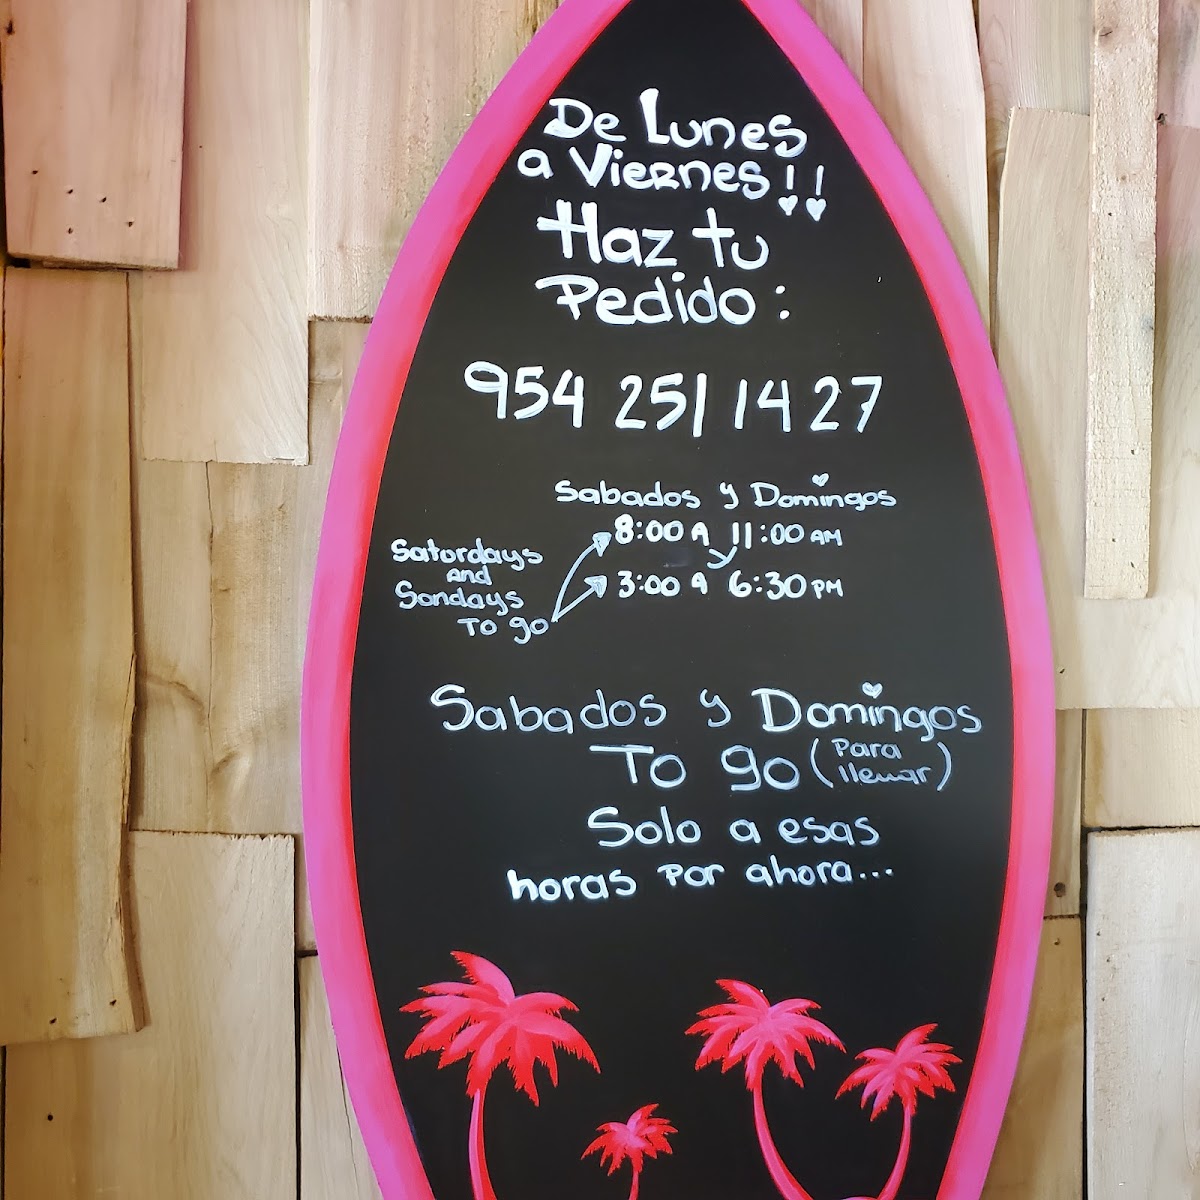 De Lunes
a Viernes!!
Haz tu
Pedido:
954 251 1427
Sabados y Domingos
8:00 A 11:00 AM
y
3:00 A 6:30 PM
Satordays
and
Sondays
To go
Sabados y Domingos
To go (Para
llevar)
Solo a esas
horas por ahora...